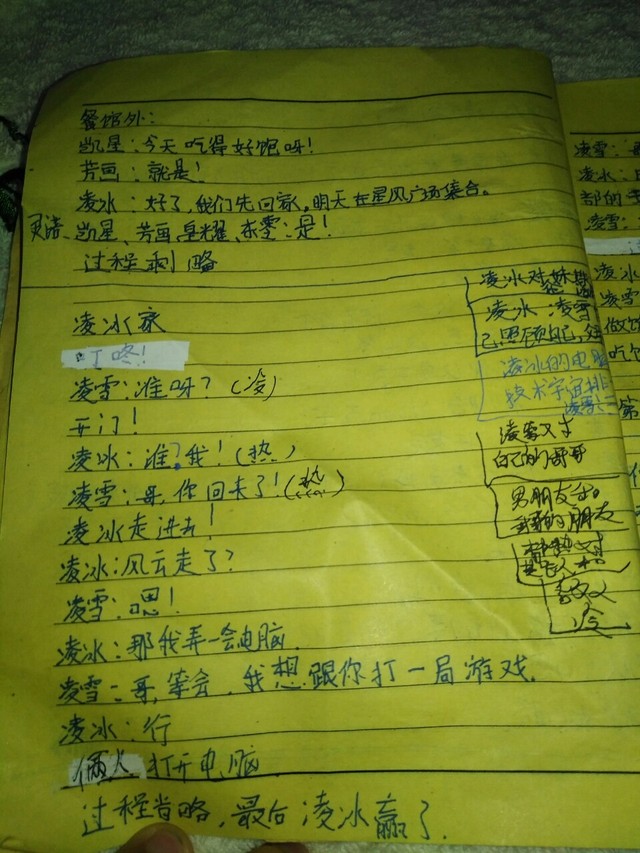 餐馆外：
凯星：今天吃得好饱呀！
芳画：就是！
凌冰：好了，我们先回家，明天在星风广场集合。
凯星、芳画、星耀、东雪：是！
过程剩略
凌冰家
叮咚！
凌雪：准呀？（冷）
开门！
凌冰：谁？我！（热）
凌雪：哥，你回来了！（热）
凌冰走进去！
凌冰：风云走了？
凌雪：嗯！
凌冰：那我弄一会电脑.
凌雪：哥，等会，我想跟你打一局游戏.
凌冰：行
俩人打开电脑
过程省略，最后凌冰赢了.
凌冰对
凌冰：凌雪
己照顾自己，
凌冰的电脑
技术宇宙排
凌雪又对
自己的哥哥
男朋友和
的朋友
敌人
冷
凌雪：
凌冰：
部的
凌雪：
凌冰
凌雪
做饭
吃饭
第